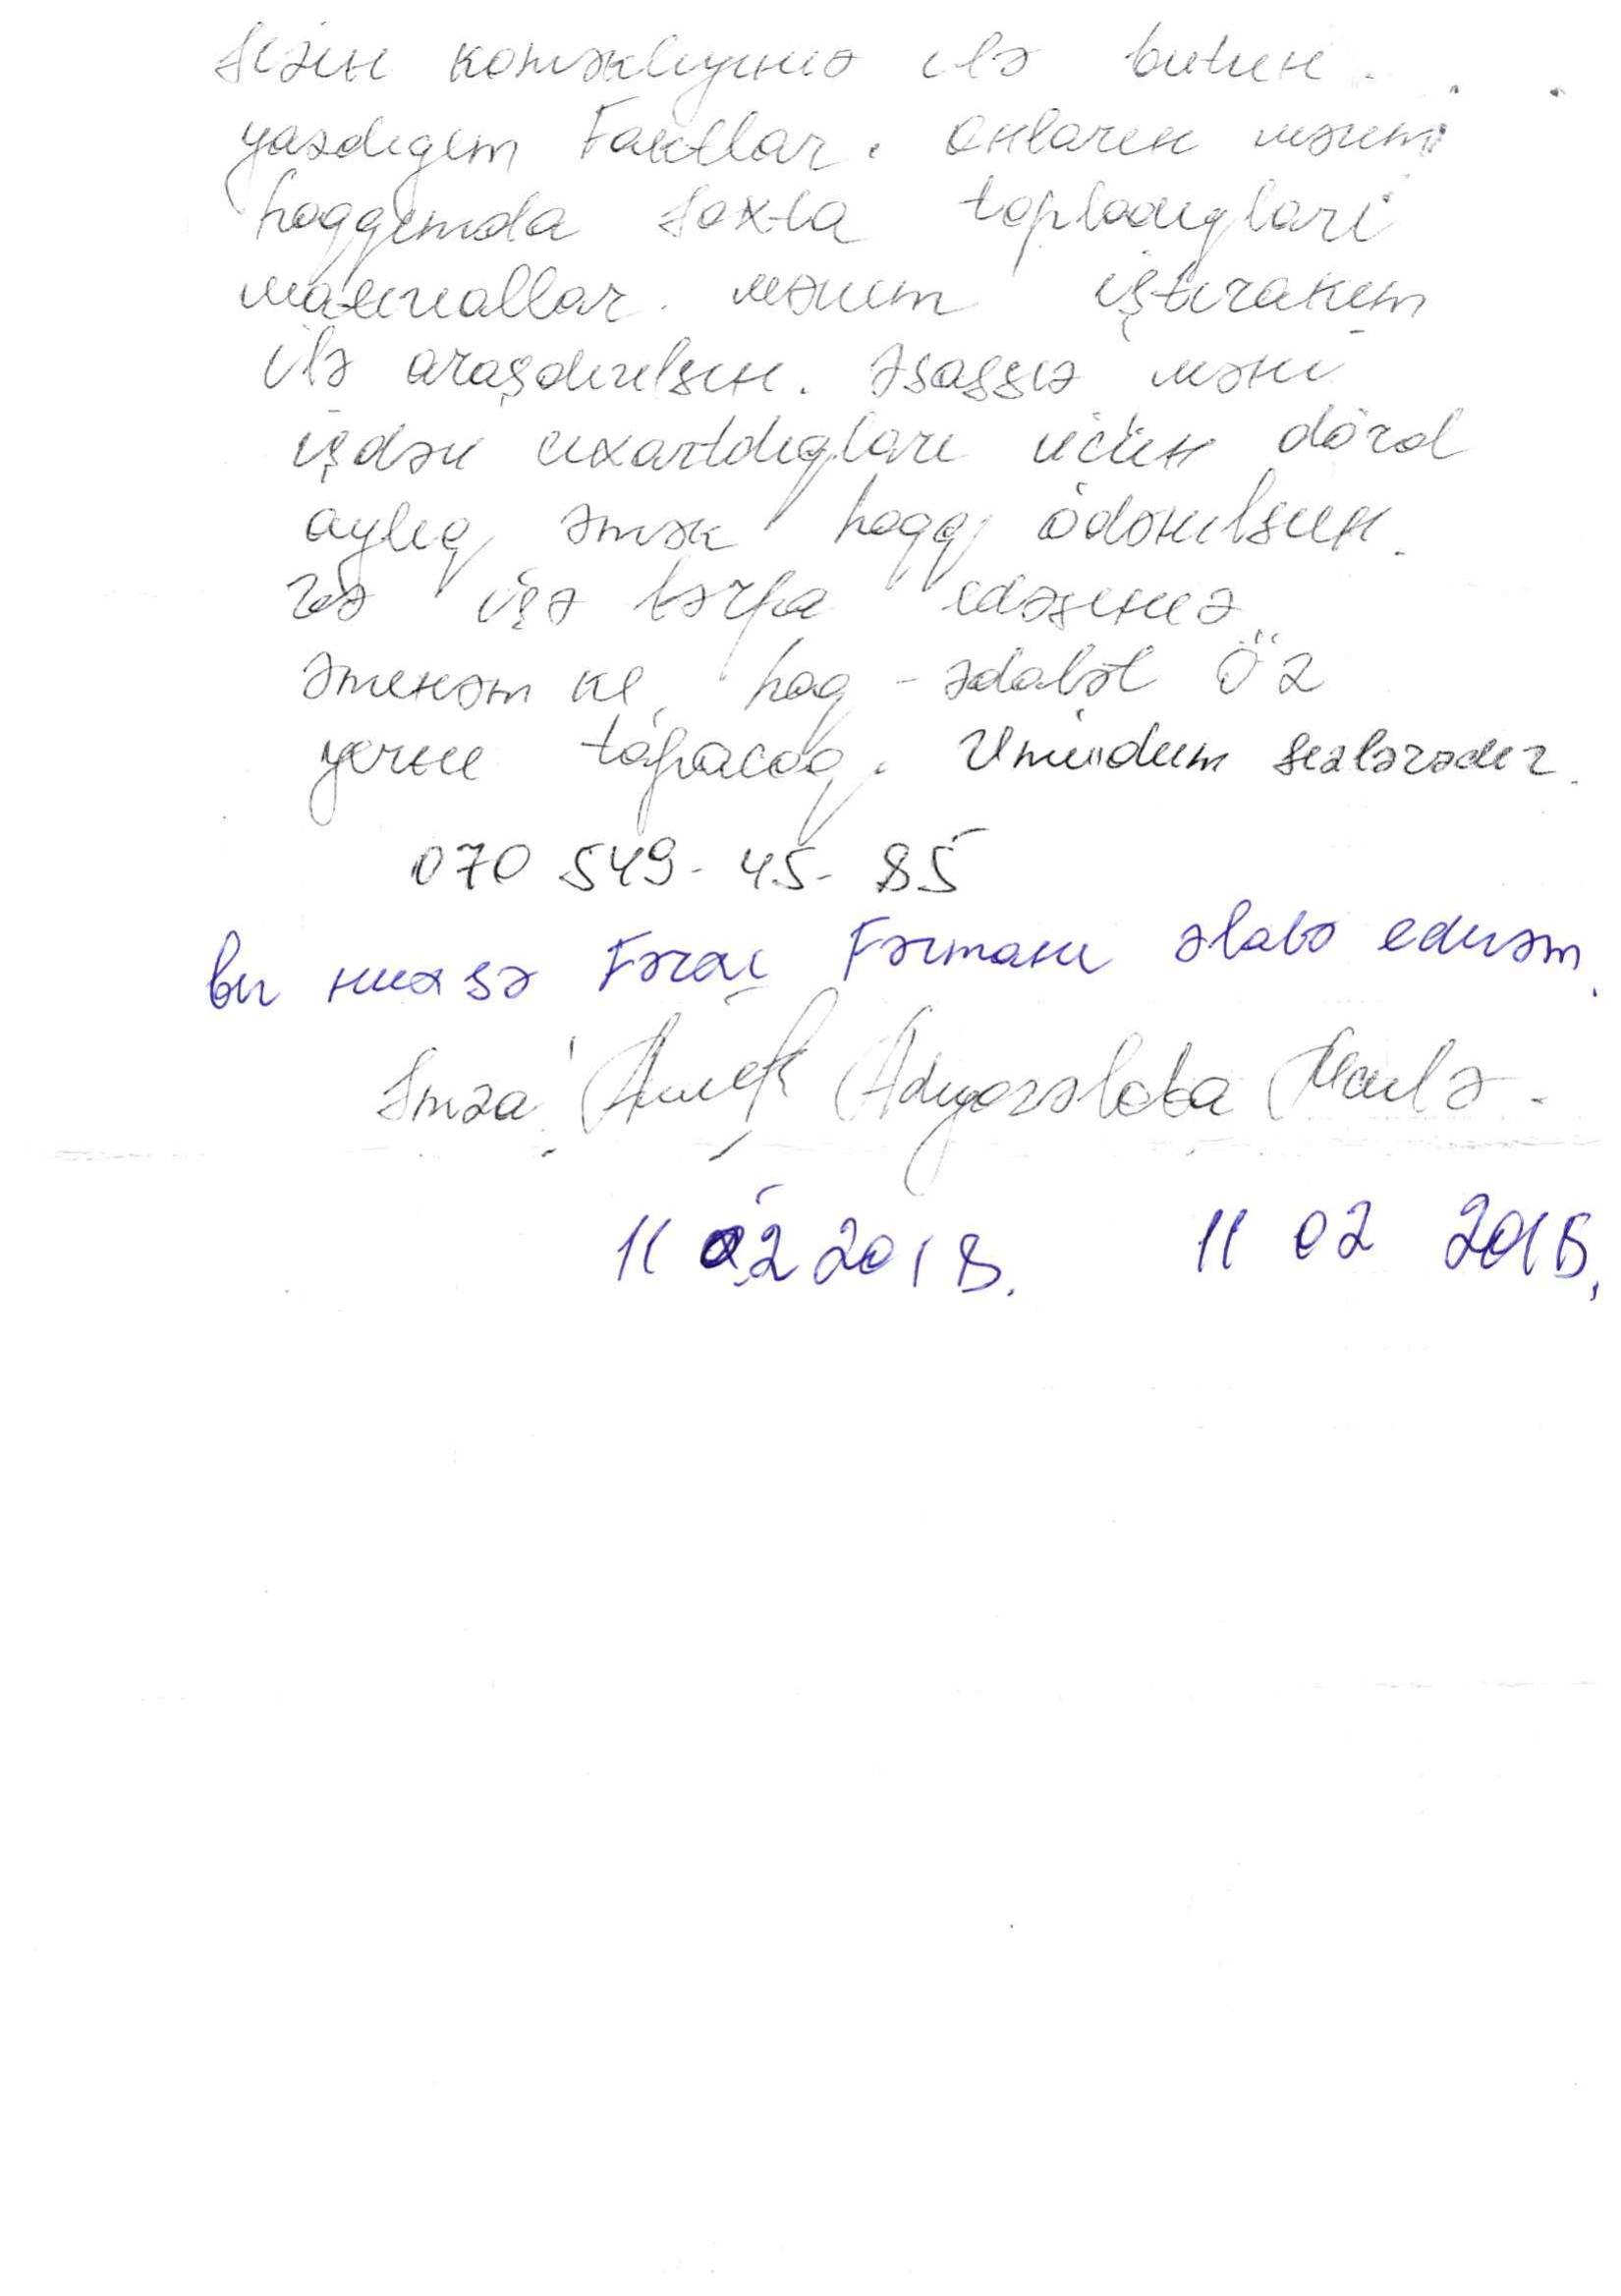 sizin koməkliyiniz ilə butun
yazdıgım Faktlar. onların mənim
haqqımda saxta topladıqları
materiallar. mənim iştirakım
ilə araşdırılsın. əsassız məni
işdən cıxartdıqları ücün dörd
aylıq əmək haqqı ödənilsin.
və işə bərpa edəsiniz
əminəm ki, haq-ədalət Öz
yerini tapacaq. Umüdum sizlərədir.
070 549-45-85
bu əlavə edirəm.
imza Adıgozəlova
11 02 2018. 11 02 2018.